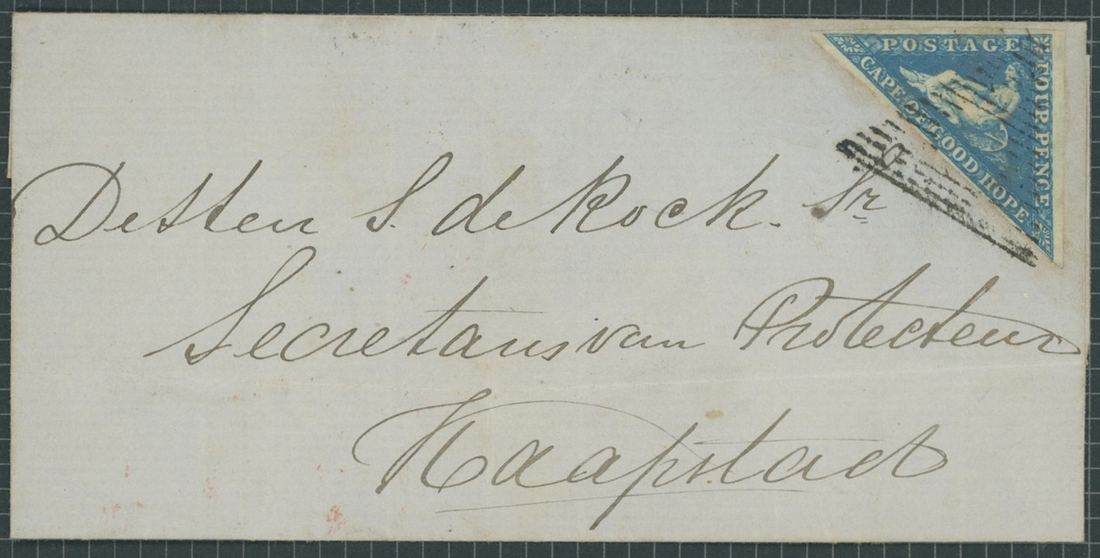 POSTAGE
FOUR PENCE
CAPE OF GOOD HOPE
De Sten S. de Kock. Sr
Secretaris van Protecteur
Kaapstad